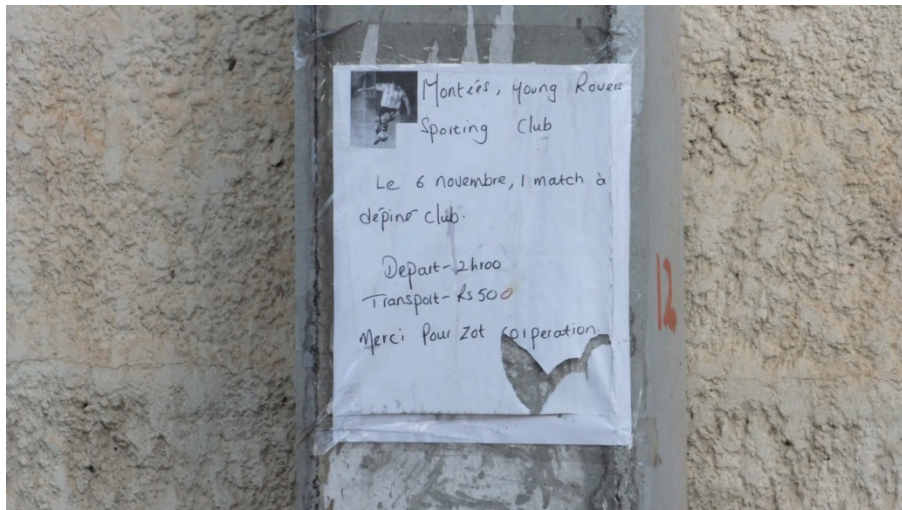 Montées, Young Rovers
Sporting Club
Le 6 novembre, 1 match à
dépiné club.
Départ - 2h00
Transport - Rs 500
Merci Pour Zot
12